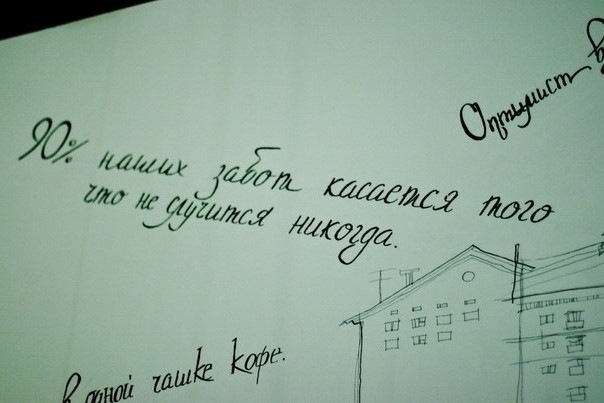 Оптимист
90% наших забот касается того
что не случится никогда.
в одной чашке кофе.